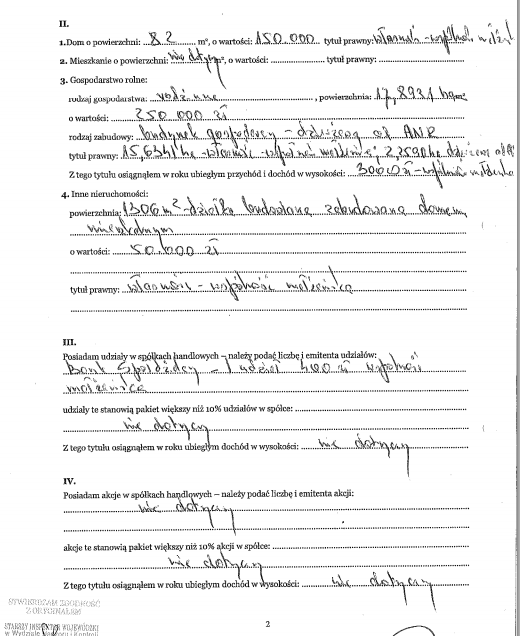 II.
1. Dom o powierzchni: 82 m², o wartości: 150.000 tytuł prawny: własność - wspólność małż.
2. Mieszkanie o powierzchni: nie dotyczy m², o wartości: tytuł prawny:
3. Gospodarstwo rolne:
rodzaj gospodarstwa: rodzinne, powierzchnia: 17,8931 ha
o wartości: 250 000 zł
rodzaj zabudowy: budynek gospodarczy - dzierżawa od ANR
tytuł prawny: 15,6341 ha własność - wspólność małżeńska, 2,2590 ha dzierżawa od
Z tego tytułu osiągnąłem w roku ubiegłym przychód i dochód w wysokości: zł - wspólność małżeńska
4. Inne nieruchomości:
powierzchnia: 1306 m² - działka budowlana zabudowana domem
mieszkalnym
o wartości: 50.000 zł
tytuł prawny: własność - wspólność małżeńska
III.
Posiadam udziały w spółkach handlowych – należy podać liczbę i emitenta udziałów:
Bank Spółdzielczy - 1 udział 400 zł wspólność
małżeńska
udziały te stanowią pakiet większy niż 10% udziałów w spółce:
nie dotyczy
Z tego tytułu osiągnąłem w roku ubiegłym dochód w wysokości: nie dotyczy
IV.
Posiadam akcje w spółkach handlowych – należy podać liczbę i emitenta akcji:
nie dotyczy
akcje te stanowią pakiet większy niż 10% akcji w spółce:
nie dotyczy
Z tego tytułu osiągnąłem w roku ubiegłym dochód w wysokości: nie dotyczy
STWIERDZAM ZGODNOŚĆ
Z ORYGINAŁEM
2
STARSZY INSPEKTOR WOJEWÓDZKI
w Wydziale i Kontroli